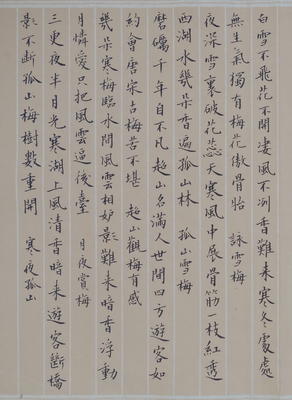 白雪不飛花不開凄風不冽香難來寒冬處處
無生氣獨有梅花傲骨胎 詠雪梅
夜深雪裏破花蕊天寒風中展骨筋一枝紅透
西湖水幾朵香遍孤山林 孤山雪梅
磨礪千年自不凡超山名滿人世間四方遊客如
約會唐宋古梅苦不堪 超山觀梅有感
幾朵寒梅臨水開風雲相妒影難來暗香浮動
月憐愛只把風雲逼後臺 月夜賞梅
三更夜半月光寒湖上風清香暗來遊客斷橋
影不斷孤山梅樹數重開 寒夜孤山